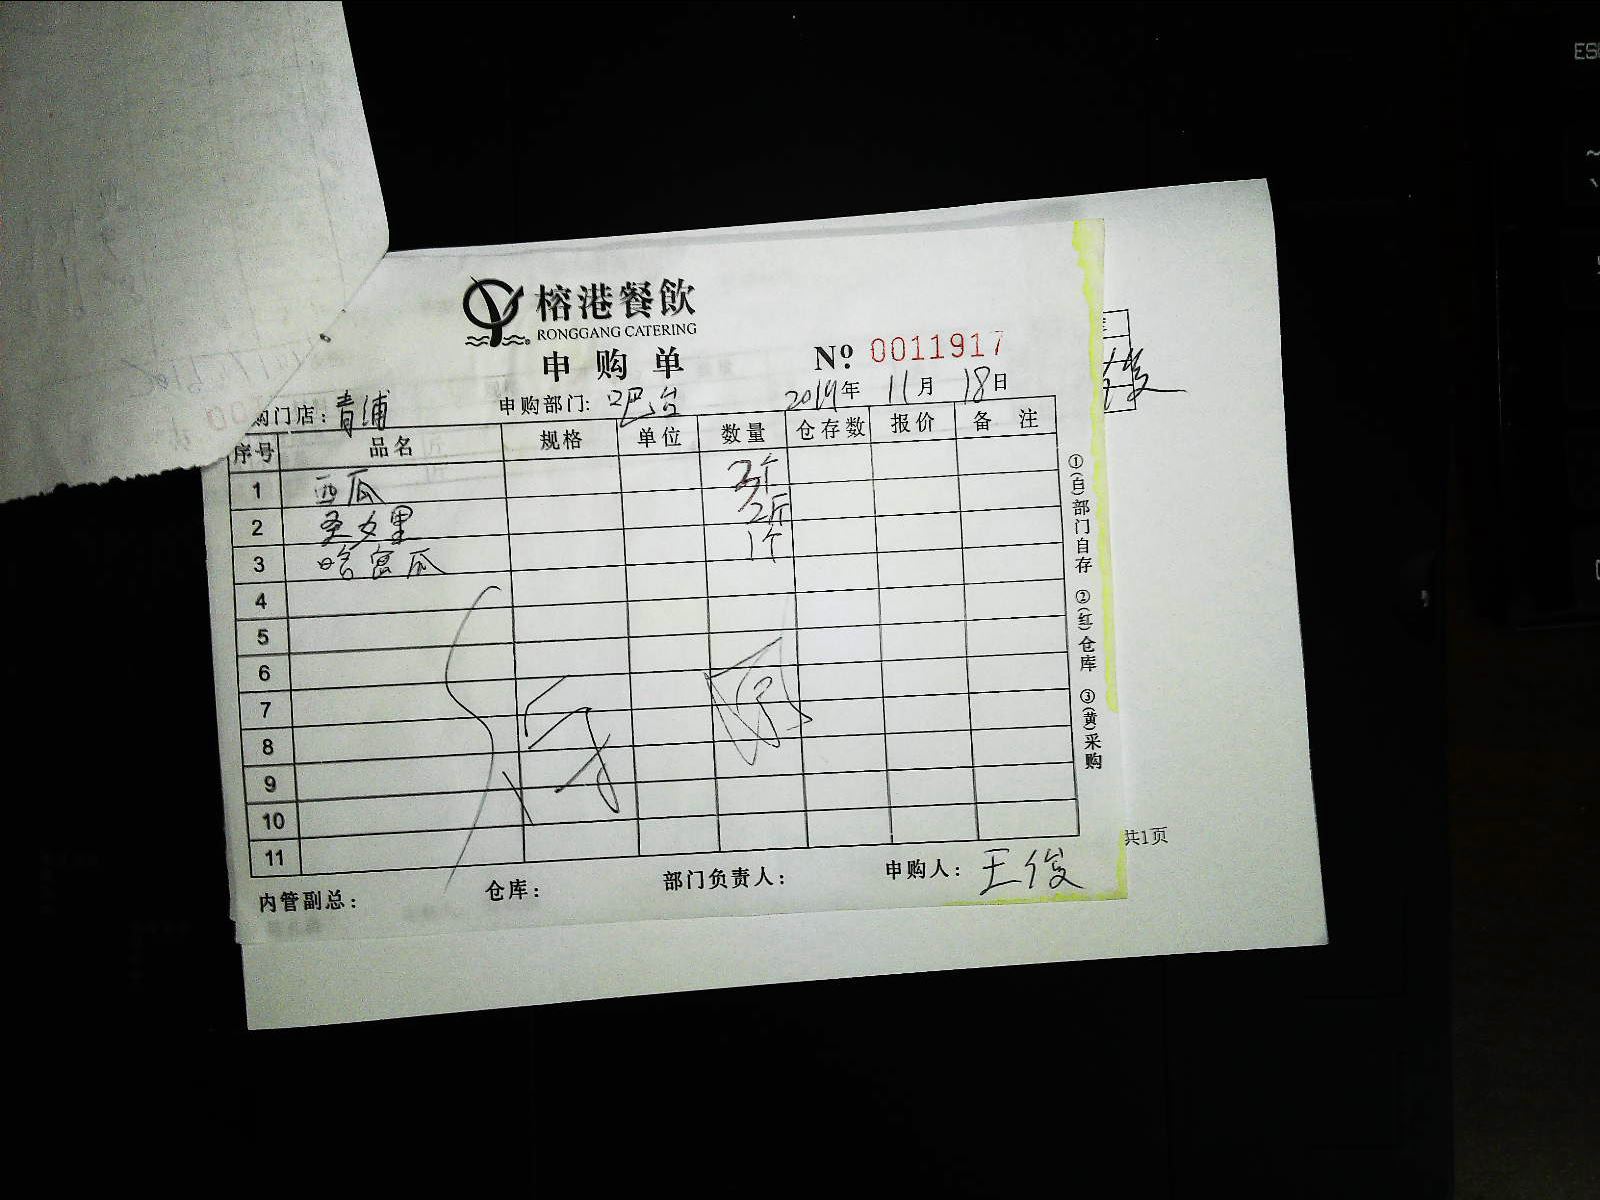 榕港餐飲
RONGGANG CATERING
申购单 Nº 0011917
购门店：青浦 申购部门：吧台 2019年 11月 18日
序号 品名 规格 单位 数量 仓存数 报价 备 注
1 西瓜 个
2 圣女果 2斤
3 哈密瓜 1个
4
5
6
7
8
9
10
11
内管副总： 仓库： 部门负责人： 申购人：王俊
①(白)部门自存 ②(红)仓库 ③(黄)采购
俊
共1页
ES